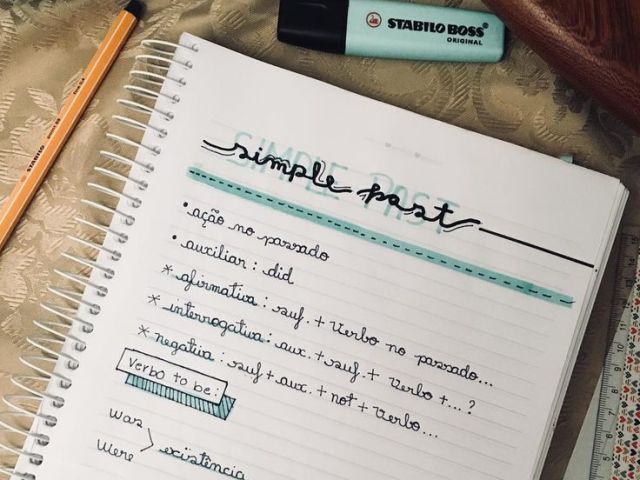 STABILO BOSS
ORIGINAL
STABILO
SIMPLE PAST
simple past
• ação no passado
• auxiliar : did
* afirmativa : suj. + verbo no passado...
* interrogativa : aux. + suj. + verbo + ...?
* negativa : suj + aux. + not + verbo...
Verbo to be:
was
were
existência